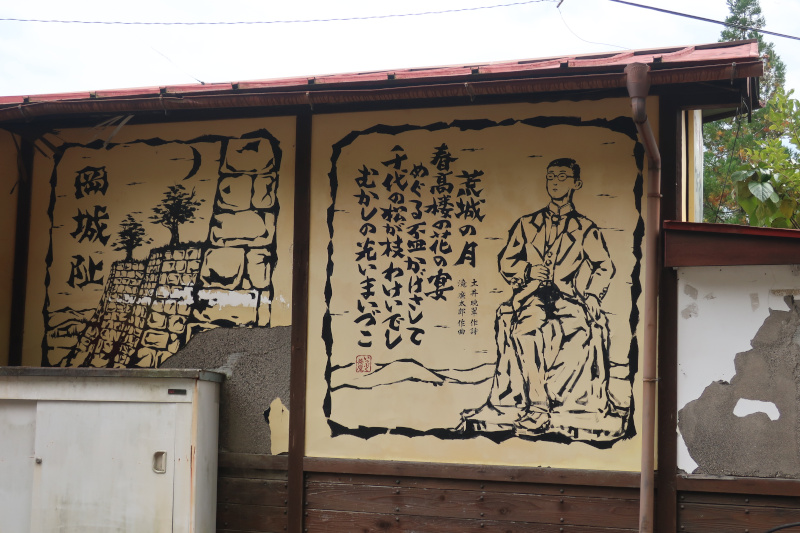 岡城阯
荒城の月
土井晩翠 作詩
滝廉太郎 作曲
春高楼の花の宴
めぐる盃かげさして
千代の松が枝わけいでし
むかしの光いまいづこ